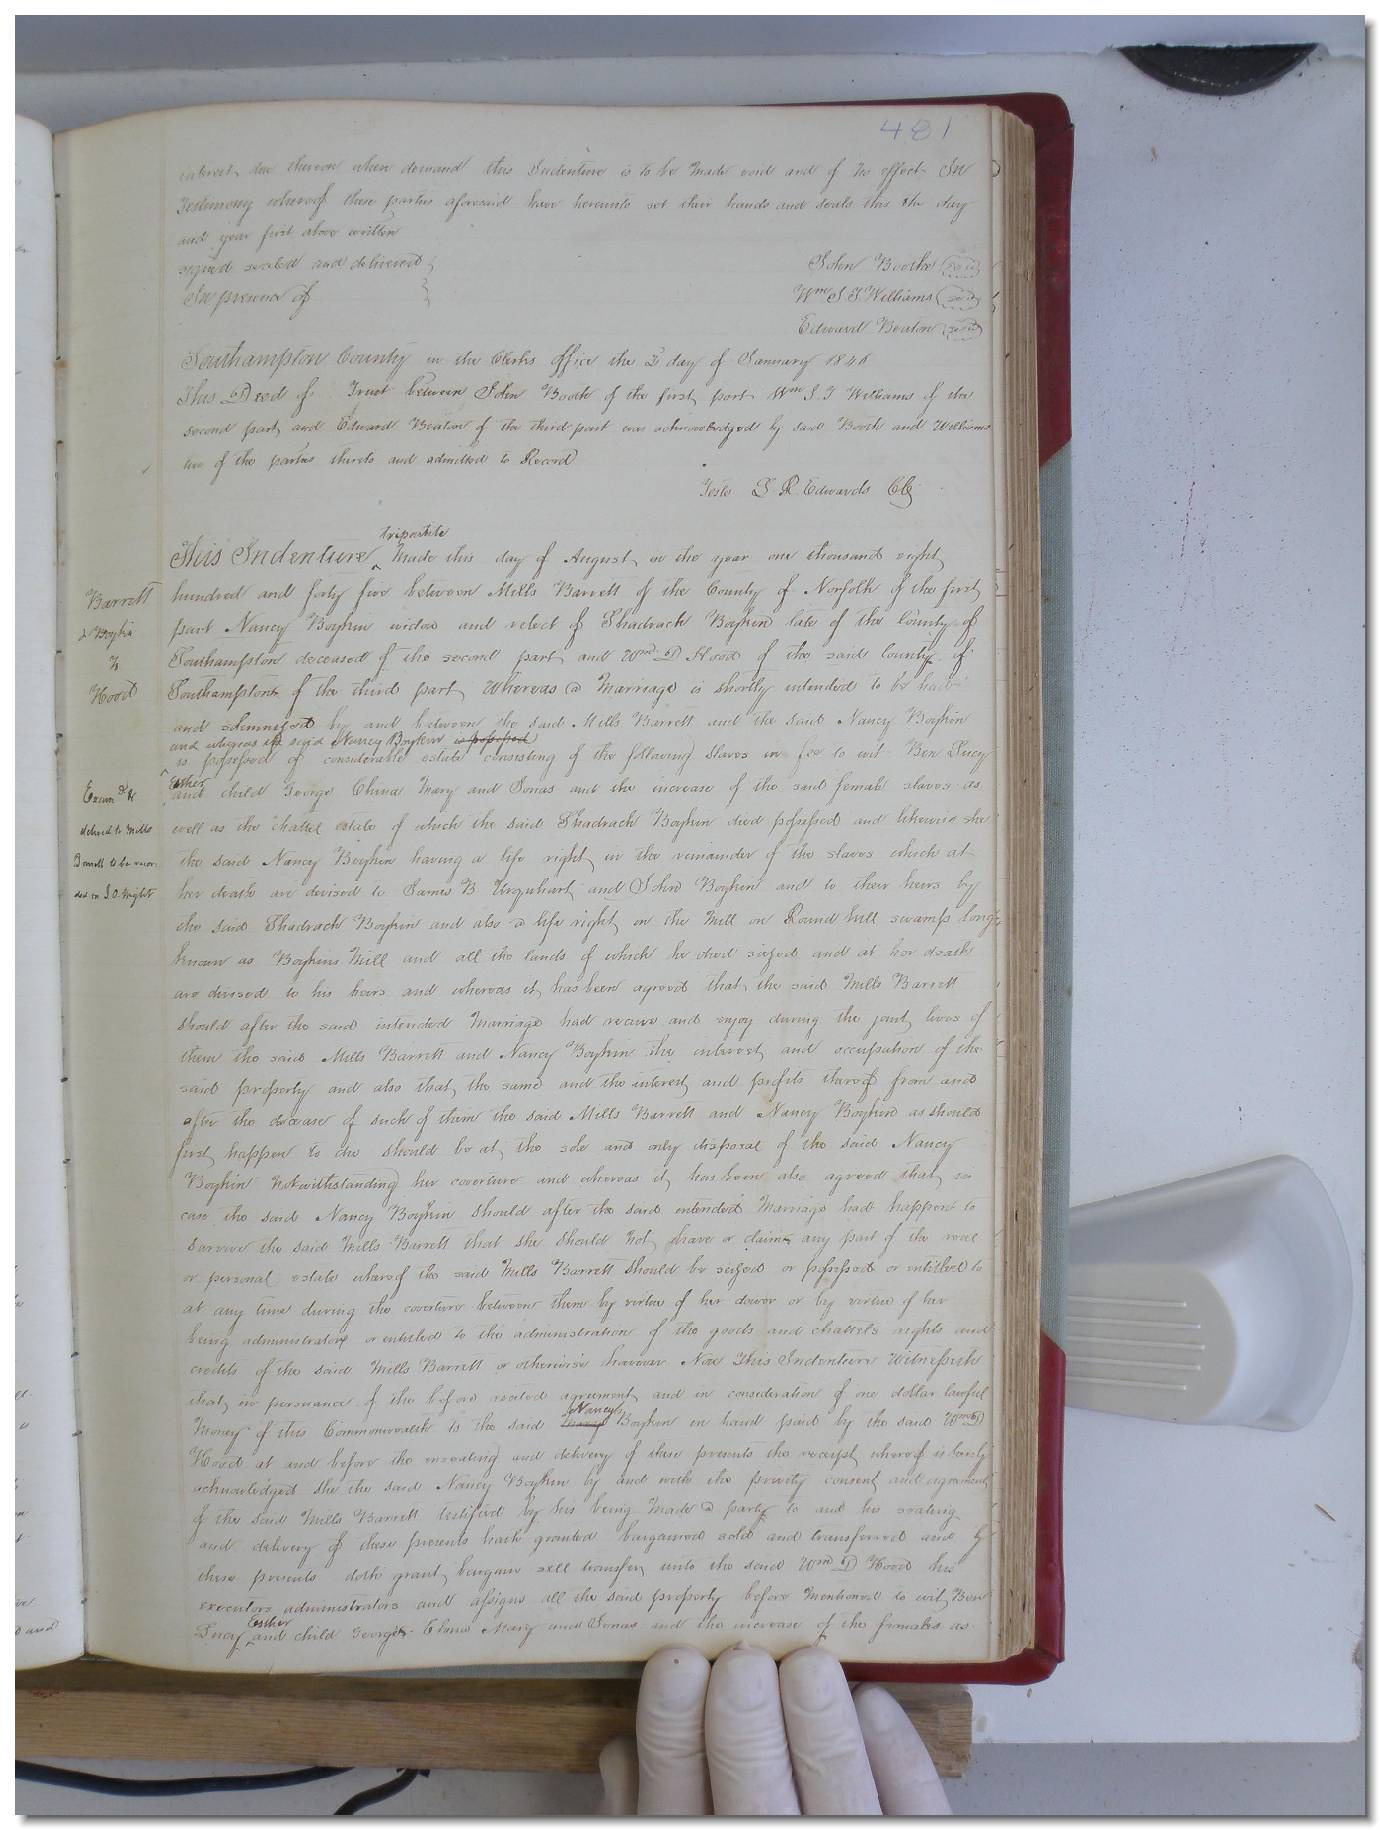 481
interest due thereon when demand this Indenture is to be Made void and of No effect In
Testimony whereof these parties aforesaid have hereunto set their hands and seals this the day
and year first above written
signed sealed and delivered
In presence of
John Boothe seal
Wm S J Williams seal
Edward Beaton seal
Southampton County in the Clerks office the day of January 1846
This Deed of Trust between John Booth of the first part Wm S. J Williams of the
second part and Edward Beaton of the third part was acknowledged by said Booth and Williams
two of the parties thereto and admitted to Record
Teste L. R. Edwards Clk
tripartite
This Indenture ^ Made this day of August in the year one thousand eight
hundred and forty five between Mills Barrett of the County of Norfolk of the first
part Nancy Boykin widow and relect of Shadrach Boykin late of the County of
Southampton deceased of the second part and Wm D Hood of the said County of
Southampton of the third part Whereas a Marriage is shortly intended to be had
and solemnized by and between the said Mills Barrett and the said Nancy Boykin
and whereas the said Nancy Boykin is possessed
is possessed of considerable estate consisting of the following slaves in fee to wit Ben Lucy
Esther
and child George China Mary and Jonas and the increase of the said female slaves as
well as the chattel estate of which the said Shadrach Boykin died possessed and likewise she
the said Nancy Boykin having a life right in the remainder of the slaves which at
her death are devised to James B Urquhart and John Boykin and to their heirs by
the said Shadrach Boykin and also a life right on the Mill on Round hill swamp long
known as Boykins Mill and all the lands of which he died seized and at her death
are devised to his heirs and whereas it has been agreed that the said Mills Barrett
should after the said intended Marriage had receive and enjoy during the joint lives of
them the said Mills Barrett and Nancy Boykin the interest and occupation of the
said property and also that the same and the interest and profits thereof from and
after the decease of such of them the said Mills Barrett and Nancy Boykin as should
first happen to die should be at the sole and only disposal of the said Nancy
Boykin Notwithstanding her coverture and whereas it has been also agreed that in
case the said Nancy Boykin should after the said intended Marriage had happen to
survive the said Mills Barrett that she should Not have or claim any part of the real
or personal estate whereof the said Mills Barrett should be seized or possessed or entitled to
at any time during the coverture between them by virtue of her dower or by virtue of her
being administratrix or entitled to the administration of the goods and chattels rights and
credits of the said Mills Barrett or otherwise however Now This Indenture Witnesseth
that in persuance of the before recited agreement and in consideration of one dollar lawful
Nancy
Money of this Commonwealth to the said Boykin in hand paid by the said Wm D
Hood at and before the ensealing and delivery of these presents the receipt whereof is hereby
acknowledged she the said Nancy Boykin by and with the privity consent and agreement
of the said Mills Barrett testified by his being Made a party to and his sealing
and delivery of these presents hath granted bargained sold and transferred and by
these presents doth grant bargain sell transfer unto the said Wm D Hood his
executors administrators and assigns all the said property before Mentioned to wit Ben
Esther
Lucy ^ and child George China Mary and Jonas and the increase of the females as
Barrett
& Boykin
To
Hood
Examd &
delived to Mills
Barrett to be recor
ded in I.O. Wight